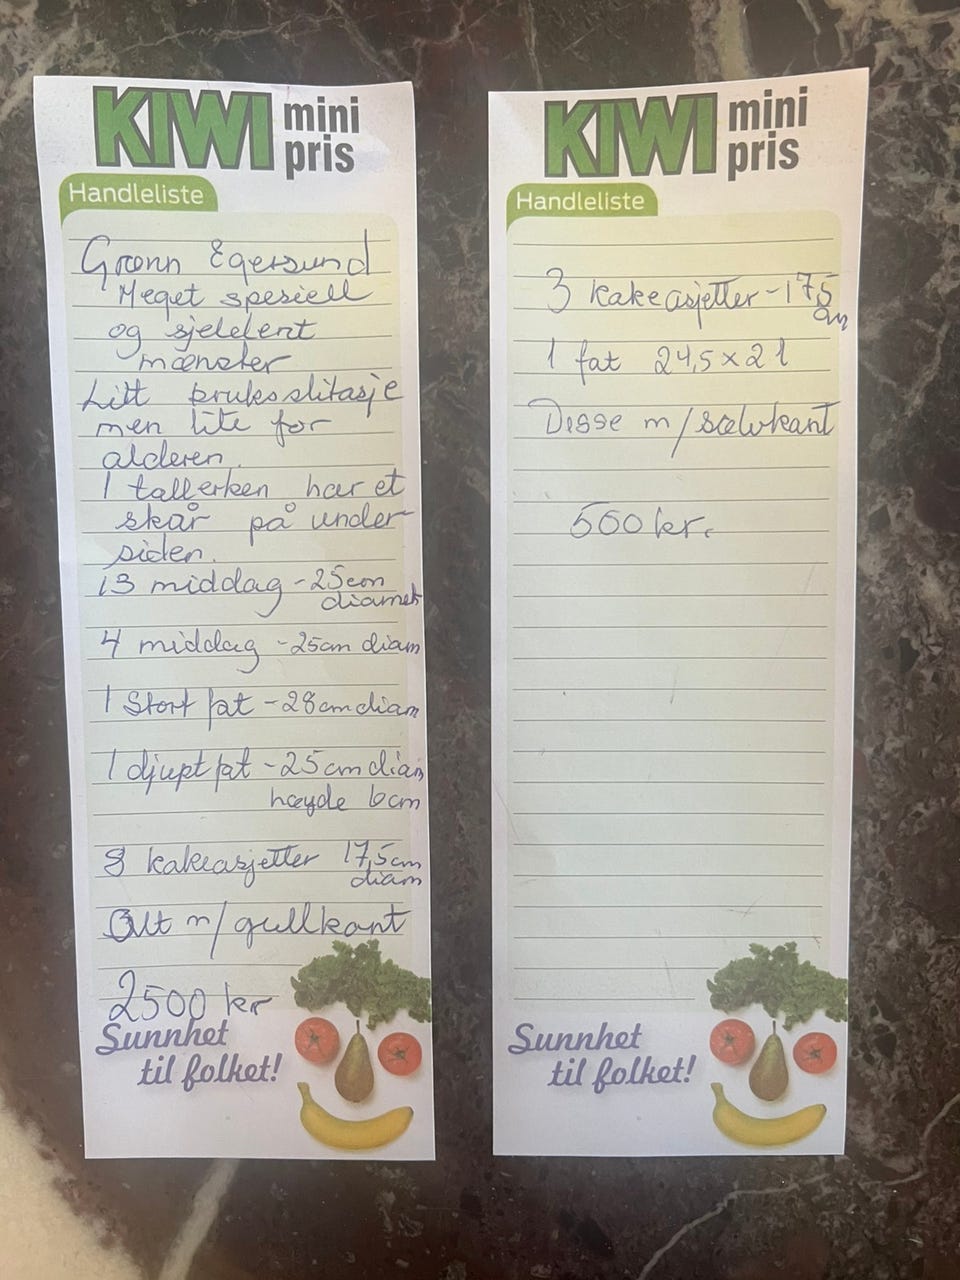 KIWI mini
pris
Handleliste
Grønn Egersund
Meget spesiell
og sjeldent
mønster
Litt bruksslitasje
men lite for
alderen.
1 tallerken har et
skår på under-
siden.
13 middag - 25cm
diamet
4 middag - 25cm diam
1 Stort fat - 28cm diam
1 djupt fat - 25cm diam
høyde 6cm
8 kakeasjetter 17,5cm
diam
Alt m/gullkant
2500 kr
Sunnhet
til folket!
KIWI mini
pris
Handleliste
3 kakeasjetter - 17,5
cm
1 fat 24,5 x 21
Disse m/sølvkant
500 kr.
Sunnhet
til folket!